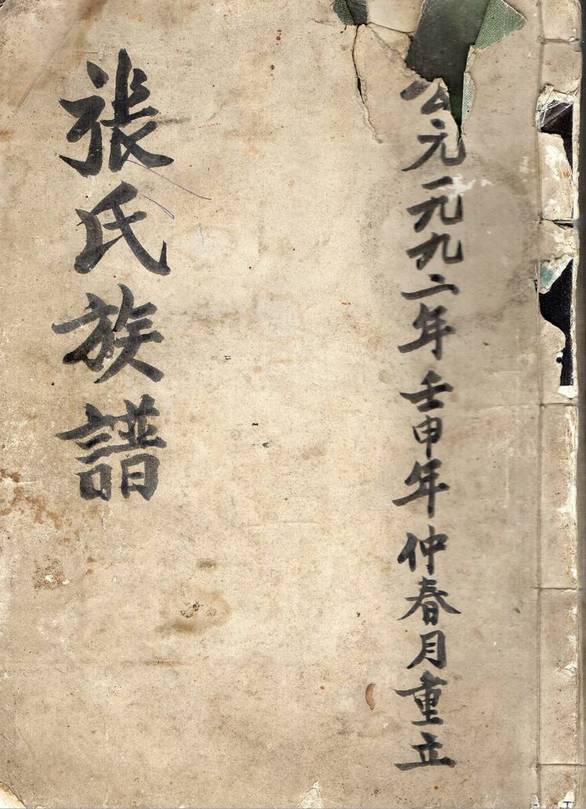 公元一九九二年壬申年仲春月重立
張氏族譜